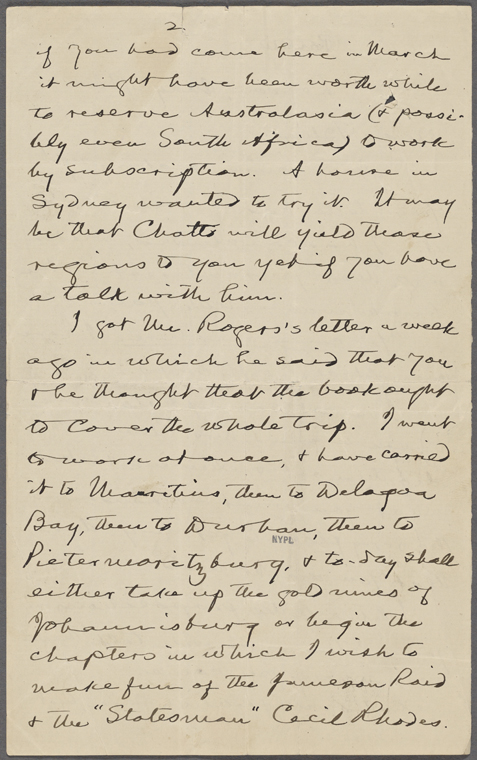 2
if you had come here in March
it might have been worth while
to reserve Australasia (& possi-
bly even South Africa) to work
by subscription. A house in
Sydney wanted to try it. It may
be that Chatto will yield those
regions to you yet if you have
a talk with him.
I got Mr. Rogers's letter a week
ago in which he said that you
& he thought that the book ought
to cover the whole trip. I went
to work at once, & have carried
it to Mauritius, then to Delagoa
Bay, then to Durban, then to
NYPL
Pietermaritzburg, & to-day shall
either take up the gold mines of
Johannisburg or begin the
chapters in which I wish to
make fun of the Jameson Raid
& the "Statesman" Cecil Rhodes.